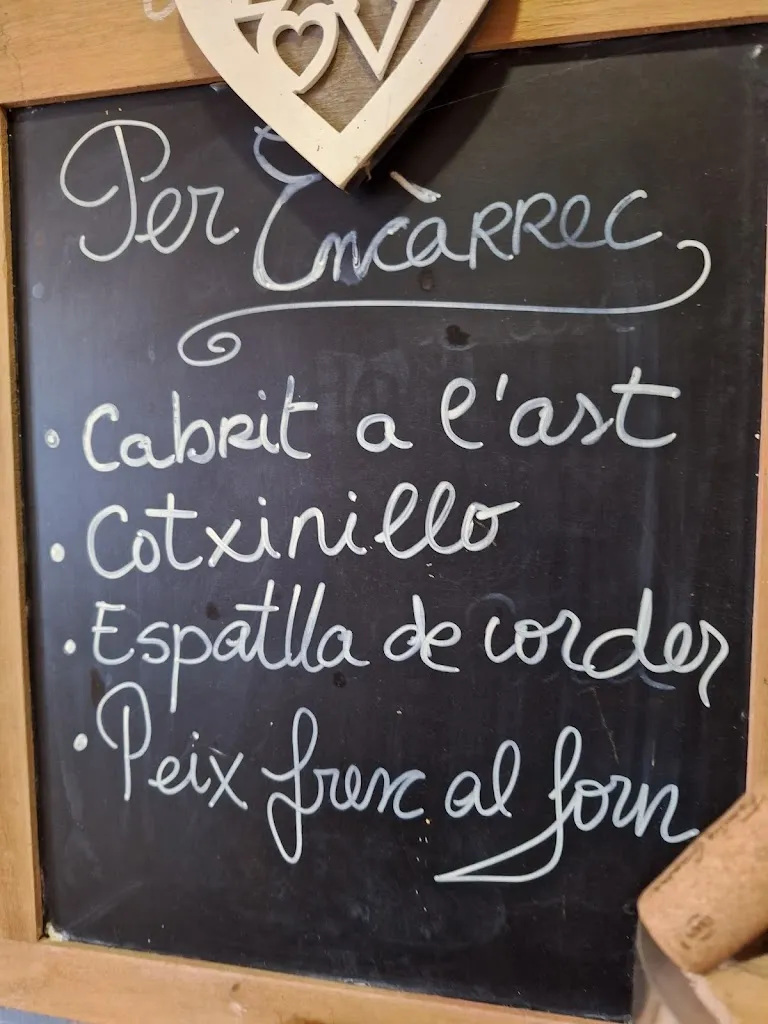 Per Encàrrec
• Cabrit a l'ast
• Cotxinillo
• Espatlla de corder
• Peix fresc al forn